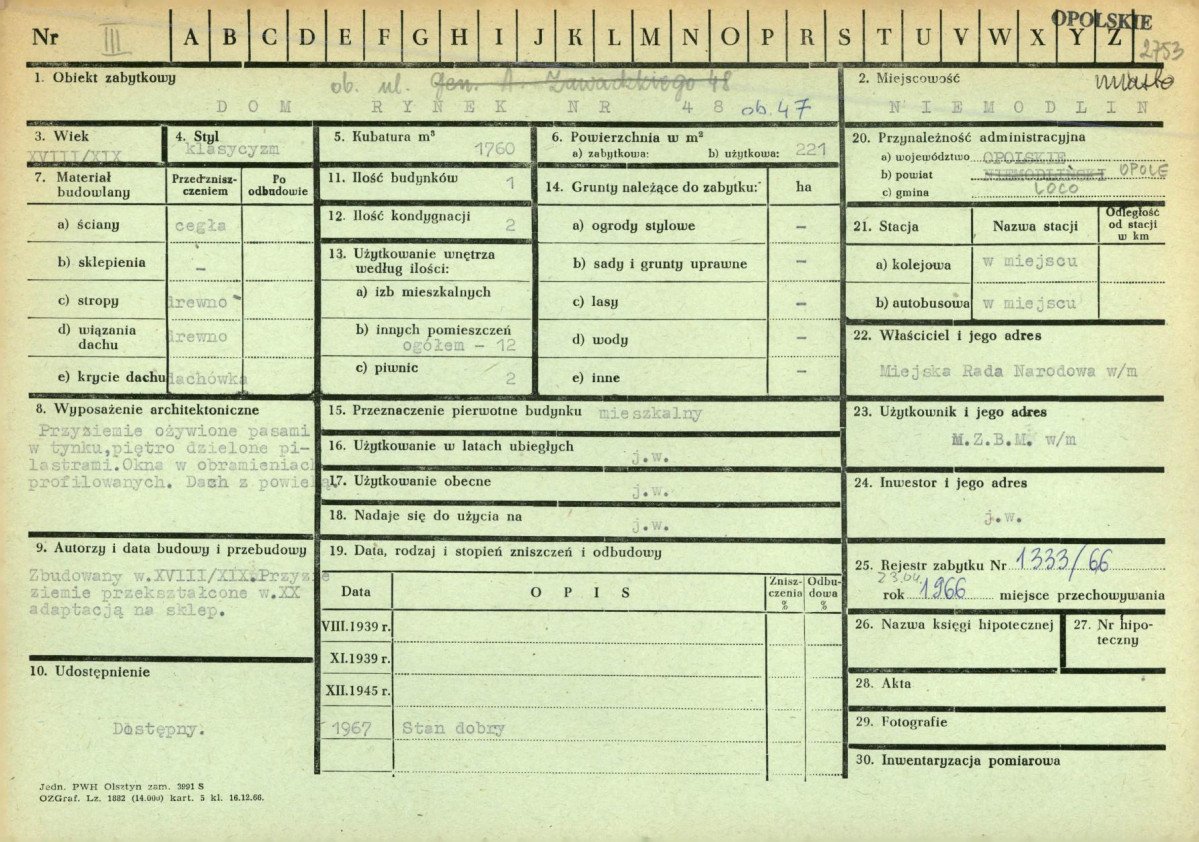 OPOLSKIE
Nr III A B C D E F G H I J K L M N O P R S T U V W X Y Z
2753
1. Obiekt zabytkowy
ob. ul. Gen. A. Zawadzkiego 48
DOM RYNEK NR 48 ob. 47
2. Miejscowość
miasto
NIEMODLIN
3. Wiek
XVIII/XIX
4. Styl
klasycyzm
5. Kubatura m³
1760
6. Powierzchnia w m²
a) zabytkowa: b) użytkowa: 221
7. Materiał budowlany
Przed zniszczeniem
Po odbudowie
a) ściany cegła
b) sklepienia –
c) stropy drewno
d) wiązania dachu drewno
e) krycie dachu dachówka
8. Wyposażenie architektoniczne
Przyziemie ożywione pasami
w tynku,piętro dzielone pi-
lastrami.Okna w obramieniach
profilowanych. Dach z powieką.
9. Autorzy i data budowy i przebudowy
Zbudowany w.XVIII/XIX.Przyzie
ziemie przekształcone w.XX
adaptacją na sklep.
10. Udostępnienie
Dostępny.
11. Ilość budynków 1
12. Ilość kondygnacji 2
13. Użytkowanie wnętrza
według ilości:
a) izb mieszkalnych
b) innych pomieszczeń
ogółem – 12
c) piwnic 2
14. Grunty należące do zabytku: ha
a) ogrody stylowe –
b) sady i grunty uprawne –
c) lasy –
d) wody –
e) inne –
15. Przeznaczenie pierwotne budynku mieszkalny
16. Użytkowanie w latach ubiegłych
j.w.
17. Użytkowanie obecne
j.w.
18. Nadaje się do użycia na
j.w.
19. Data, rodzaj i stopień zniszczeń i odbudowy
Data
OPIS
Zniszczenia %
Odbudowa %
VIII.1939 r.
XI.1939 r.
XII.1945 r.
1967 Stan dobry
20. Przynależność administracyjna
a) województwo OPOLSKIE
b) powiat NIEMODLIŃSKI OPOLE
c) gmina LOCO
21. Stacja
Nazwa stacji
Odległość od stacji w km
a) kolejowa w miejscu
b) autobusowa w miejscu
22. Właściciel i jego adres
Miejska Rada Narodowa w/m
23. Użytkownik i jego adres
M.Z.B.M. w/m
24. Inwestor i jego adres
j.w.
25. Rejestr zabytku Nr 1333/66
23.04.
rok 1966 miejsce przechowywania
26. Nazwa księgi hipotecznej
27. Nr hipo-
teczny
28. Akta
29. Fotografie
30. Inwentaryzacja pomiarowa
Jedn. PWH Olsztyn zam. 3991 S
OZGraf. Lz. 1882 (14.000) kart. 5 kl. 16.12.66.